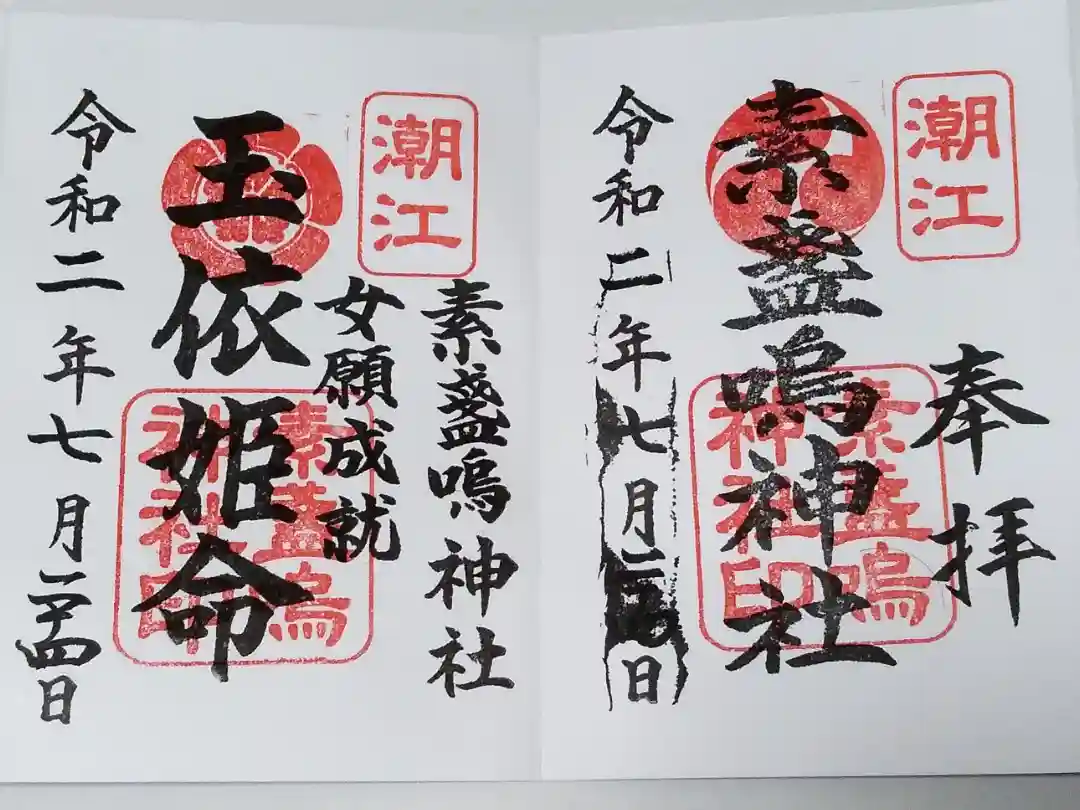 潮江
奉拝
素盞嗚神社
素盞嗚
神社印
令和二年七月二日
潮江
素盞嗚神社
女願成就
玉依姫命
素盞嗚
神社印
令和二年七月二十四日